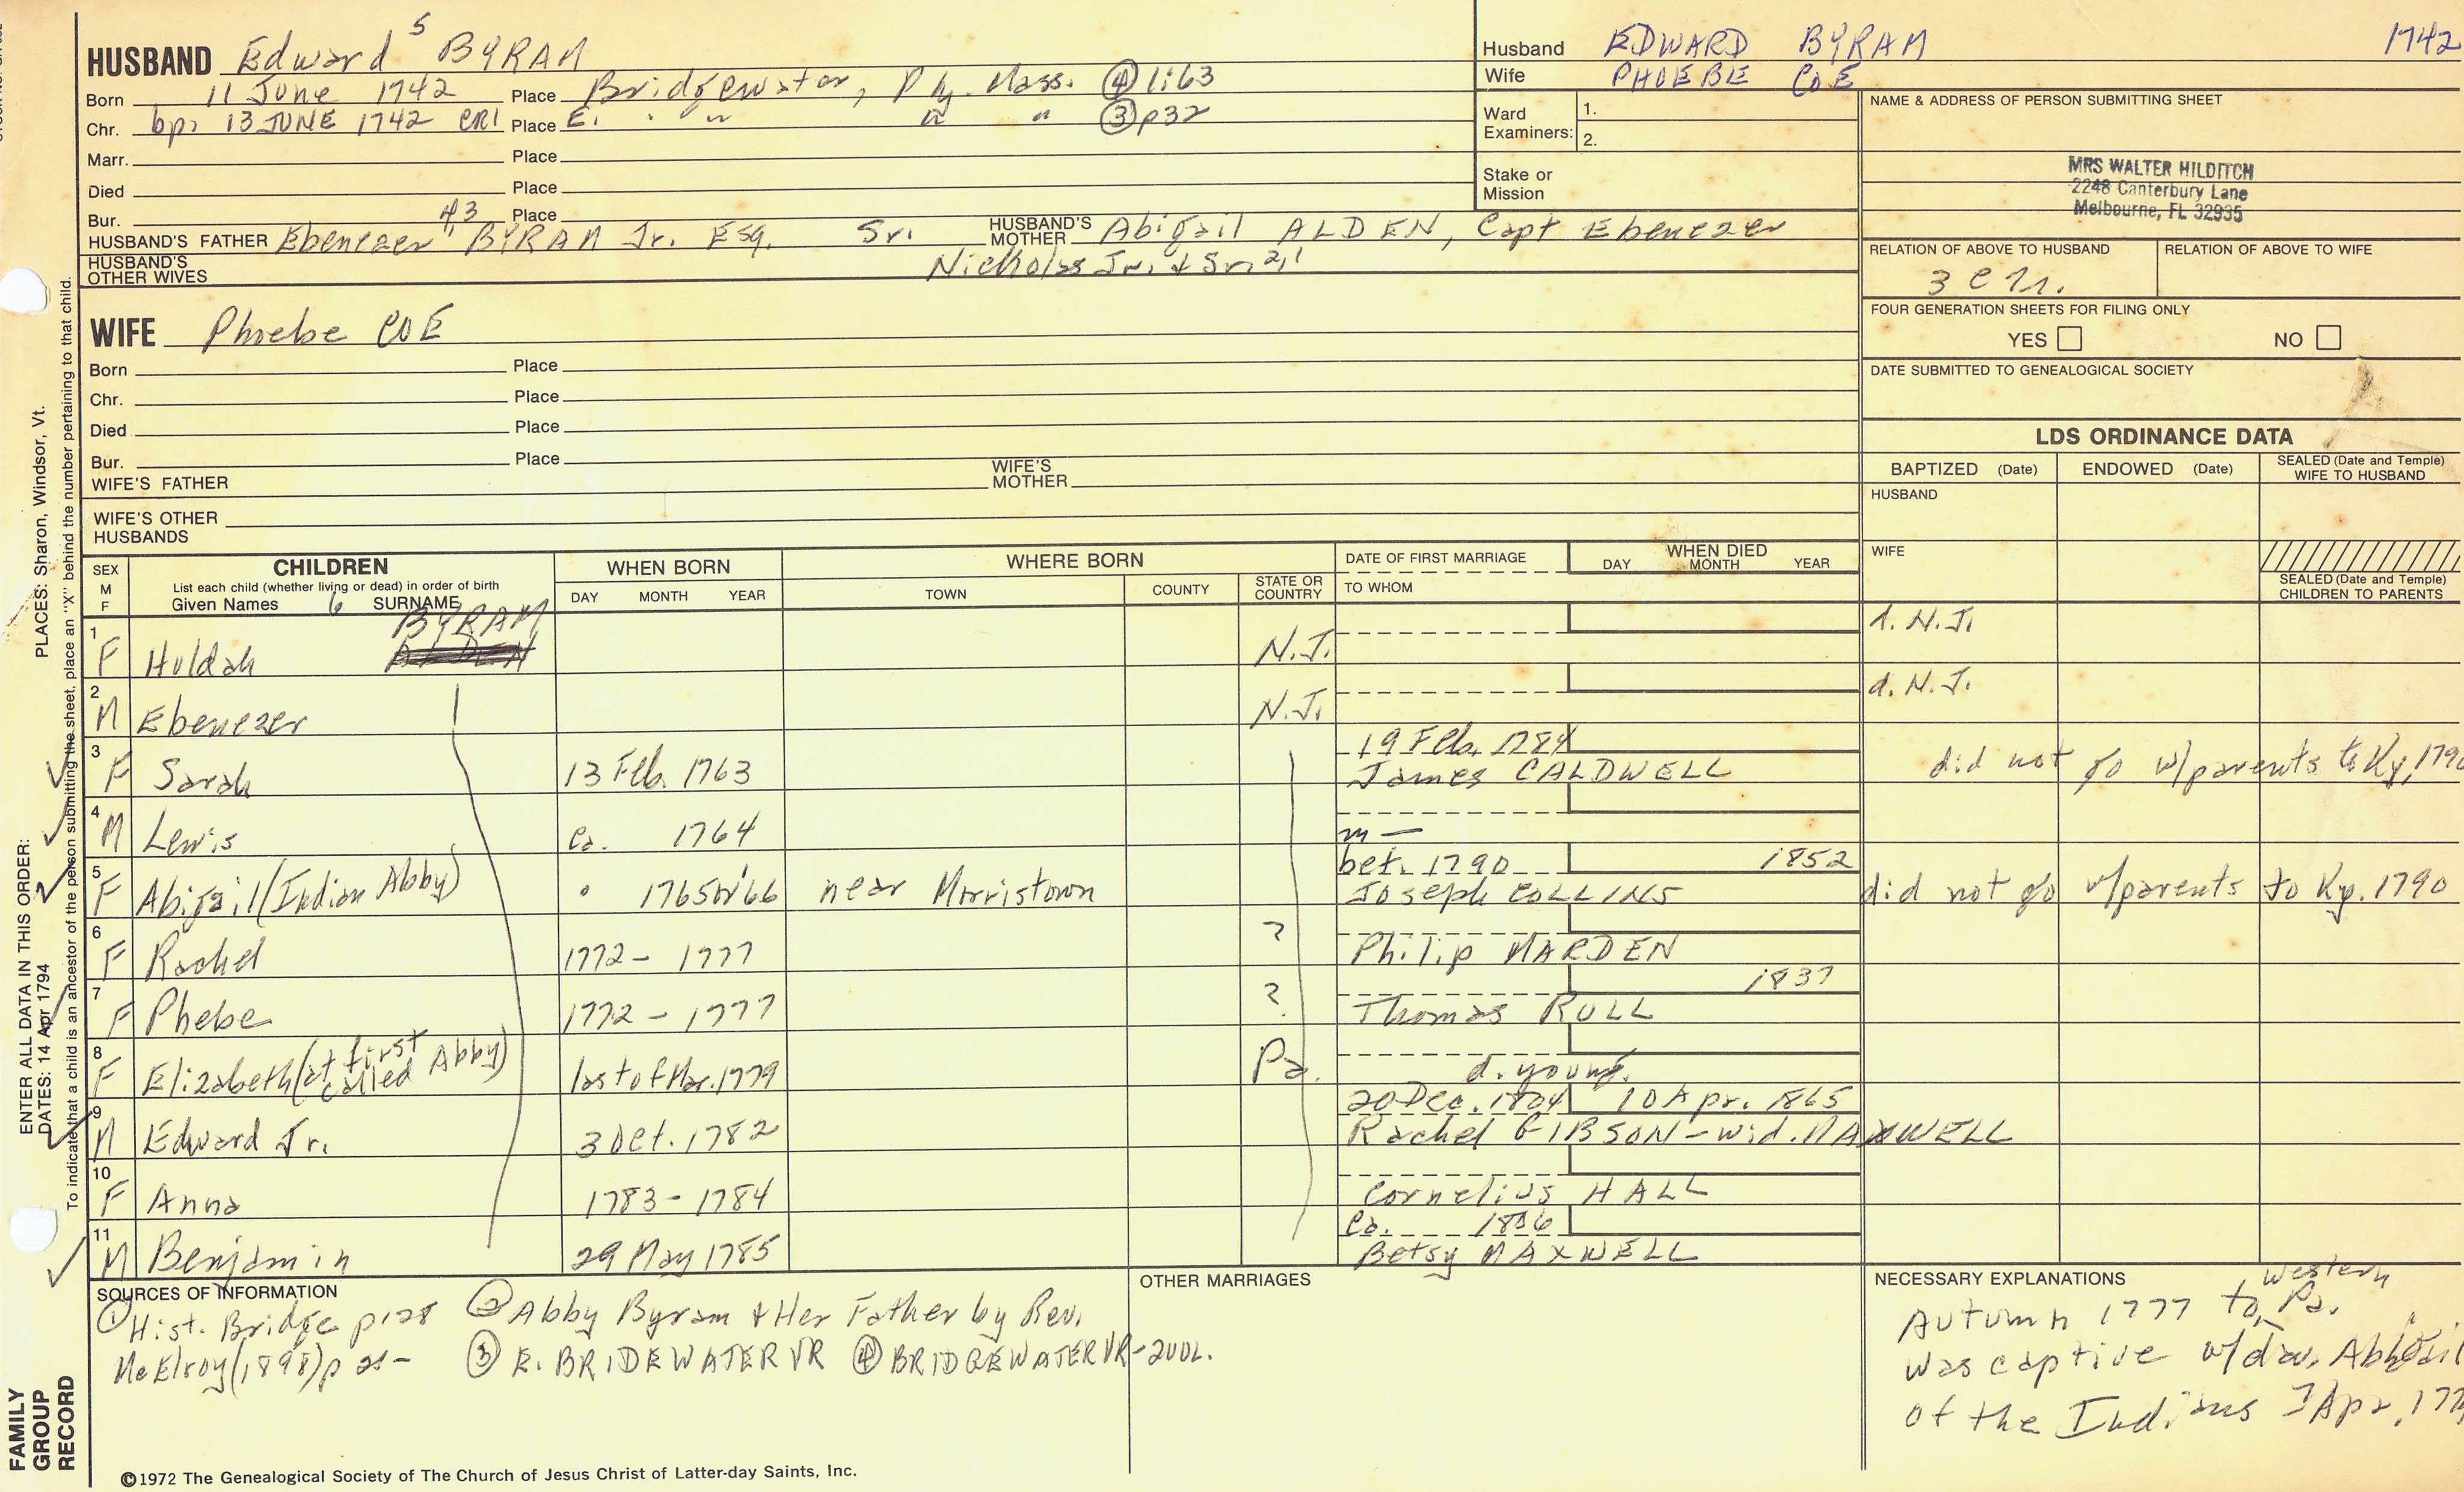 HUSBAND Edward 5 BYRAM
Born 11 June 1742 Place Bridgewater, Ply. Mass. ④ 1:63
Chr. bp. 13 JUNE 1742 CR1 Place E. " " " " ③ p32
Marr. Place
Died Place
Bur. Place
HUSBAND'S FATHER Ebenezer 4,3 BYRAM Jr. Esq. Sr. HUSBAND'S MOTHER Abigail ALDEN, Capt Ebenezer
HUSBAND'S OTHER WIVES Nicholas Jr. & Sr. 2,1
Husband EDWARD BYRAM 1742
Wife PHOEBE COE
Ward Examiners: 1.
2.
Stake or Mission
NAME & ADDRESS OF PERSON SUBMITTING SHEET
MRS WALTER HILDITCH
2248 Canterbury Lane
Melbourne, FL 32935
RELATION OF ABOVE TO HUSBAND RELATION OF ABOVE TO WIFE
FOUR GENERATION SHEETS FOR FILING ONLY
YES NO
DATE SUBMITTED TO GENEALOGICAL SOCIETY
WIFE Phoebe COE
Born Place
Chr. Place
Died Place
Bur. Place
WIFE'S FATHER WIFE'S MOTHER
WIFE'S OTHER HUSBANDS
LDS ORDINANCE DATA
BAPTIZED (Date) ENDOWED (Date) SEALED (Date and Temple) WIFE TO HUSBAND
HUSBAND
WIFE
SEALED (Date and Temple) CHILDREN TO PARENTS
SEX M F CHILDREN List each child (whether living or dead) in order of birth Given Names 6 SURNAME
WHEN BORN DAY MONTH YEAR
WHERE BORN TOWN COUNTY STATE OR COUNTRY
DATE OF FIRST MARRIAGE TO WHOM
WHEN DIED DAY MONTH YEAR
1 F Huldah BYRAM ALDEN N.J. d. N.J.
2 M Ebenezer N.J. d. N.J.
3 F Sarah 13 Feb. 1763 19 Feb. 1784 James CALDWELL did not go w/parents to Ky, 1790
4 M Lewis ca. 1764 m —
5 F Abigail (Indian Abby) 1765 or '66 near Morristown bet. 1790 Joseph COLLINS 1852 did not go w/parents to Ky. 1790
6 F Rachel 1772 - 1777 ? Philip MARDEN
7 F Phebe 1772 - 1777 ? Thomas RULL 1837
8 F Elizabeth (at first called Abby) last of Mar. 1779 Pa. d. young.
9 M Edward Jr. 3 Oct. 1782 20 Dec. 1804 10 Apr. 1865 Rachel GIBSON - wid. MAXWELL
10 F Anna 1783 - 1784 Cornelius HALL
11 M Benjamin 29 May 1785 ca. 1806 Betsy MAXWELL
SOURCES OF INFORMATION
① Hist. Bridge p128 ② Abby Byram & Her Father by Rev.
McElroy (1898) p 21- ③ E. BRIDEWATER VR ④ BRIDGEWATER VR - 2VOL.
OTHER MARRIAGES
NECESSARY EXPLANATIONS
Autumn 1777 to Western Pa.
was captive w/dau. Abigail
of the Indians Apr. 177
©1972 The Genealogical Society of The Church of Jesus Christ of Latter-day Saints, Inc.
FAMILY GROUP RECORD
ENTER ALL DATA IN THIS ORDER:
DATES: 14 Apr 1794
PLACES: Sharon, Windsor, Vt.
To indicate that a child is an ancestor of the person submitting the sheet, place an "X" behind the number pertaining to that child.